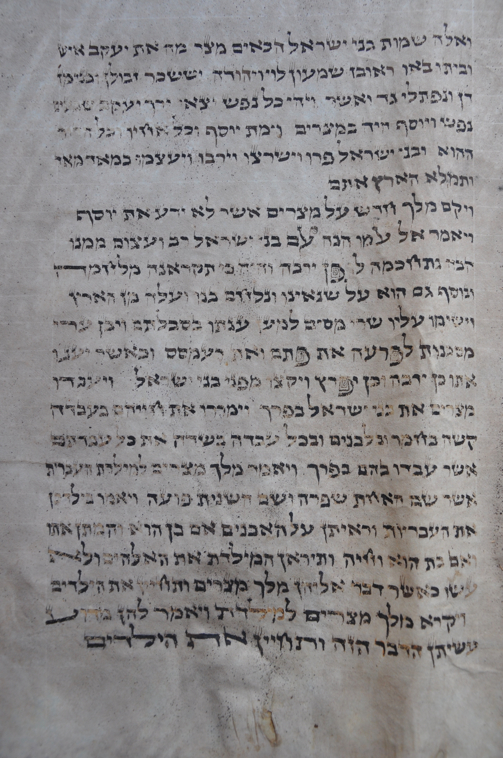 ואלה שמות בני ישראל הבאים מצרימה את יעקב איש
וביתו באו ראובן שמעון לוי ויהודה יששכר זבולן ובנימן
דן ונפתלי גד ואשר ויהי כל נפש יצאי ירך יעקב שבעים
נפש ויוסף היה במצרים וימת יוסף וכל אחיו וכל הדור
ההוא ובני ישראל פרו וישרצו וירבו ויעצמו במאד מאד
ותמלא הארץ אתם
ויקם מלך חדש על מצרים אשר לא ידע את יוסף
ויאמר אל עמו הנה עם בני ישראל רב ועצום ממנו
הבה נתחכמה לו פן ירבה והיה כי תקראנה מלחמה
ונוסף גם הוא על שנאינו ונלחם בנו ועלה מן הארץ
וישימו עליו שרי מסים למען ענתו בסבלתם ויבן ערי
מסכנות לפרעה את פתם ואת רעמסס וכאשר יענו
אתו כן ירבה וכן יפרץ ויקצו מפני בני ישראל ויעבדו
מצרים את בני ישראל בפרך וימררו את חייהם בעבדה
קשה בחמר ובלבנים ובכל עבדה בשדה את כל עבדתם
אשר עבדו בהם בפרך ויאמר מלך מצרים למילדת העברית
אשר שם האחת שפרה ושם השנית פועה ויאמר בילדכן
את העבריות וראיתן על האבנים אם בן הוא והמתן אתו
ואם בת הוא וחיה ותיראן המילדת את האלהים ולא
עשו כאשר דבר אליהן מלך מצרים ותחיין את הילדים
ויקרא מלך מצרים למילדת ויאמר להן מדוע
עשיתן הדבר הזה ותחיין את הילדים